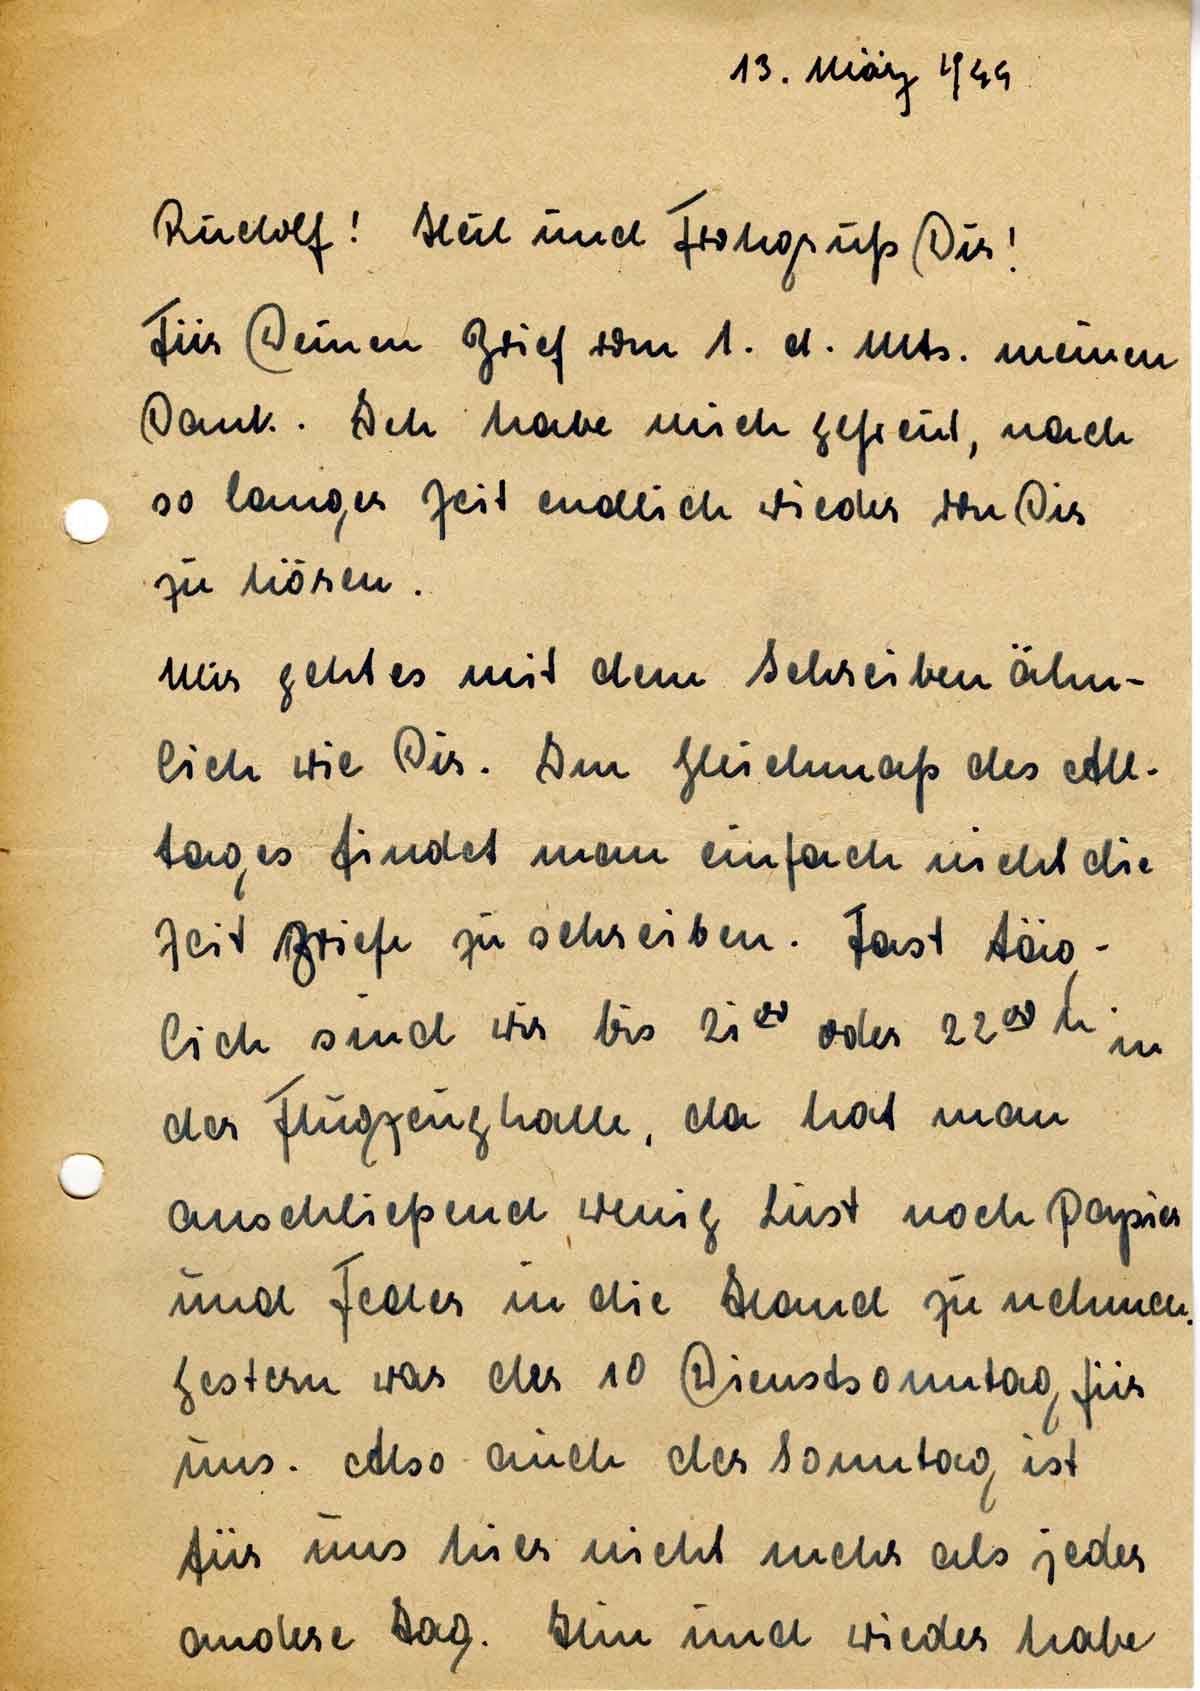 13. März 1944
Rudolf! Heil und Frohgruß Dir!
Für Deinen Brief vom 1. d. Mts. meinen
Dank. Ich habe mich gefreut, nach
so langer Zeit endlich wieder von Dir
zu hören.
Mir geht es mit dem Schreiben ähn-
lich wie Dir. Im Gleichmaß des All-
tages findet man einfach nicht die
Zeit Briefe zu schreiben. Fast täg-
lich sind wir bis 21⁰⁰ oder 22⁰⁰ h in
der Flugzeughalle, da hat man
anschließend wenig Lust noch Papier
und Feder in die Hand zu nehmen.
Gestern war der 10 Dienstsonntag für
uns. Also auch der Sonntag ist
für uns hier nicht mehr als jeder
andere Tag. Hin und wieder habe